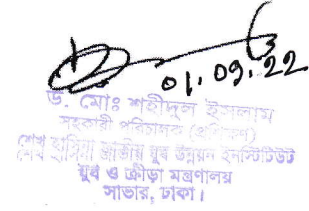 01.09.22
ড. মোঃ শহীদুল ইসলাম
সহকারী পরিচালক (প্রশিক্ষণ)
শেখ হাসিনা জাতীয় যুব উন্নয়ন ইনস্টিটিউট
যুব ও ক্রীড়া মন্ত্রণালয়
সাভার, ঢাকা।